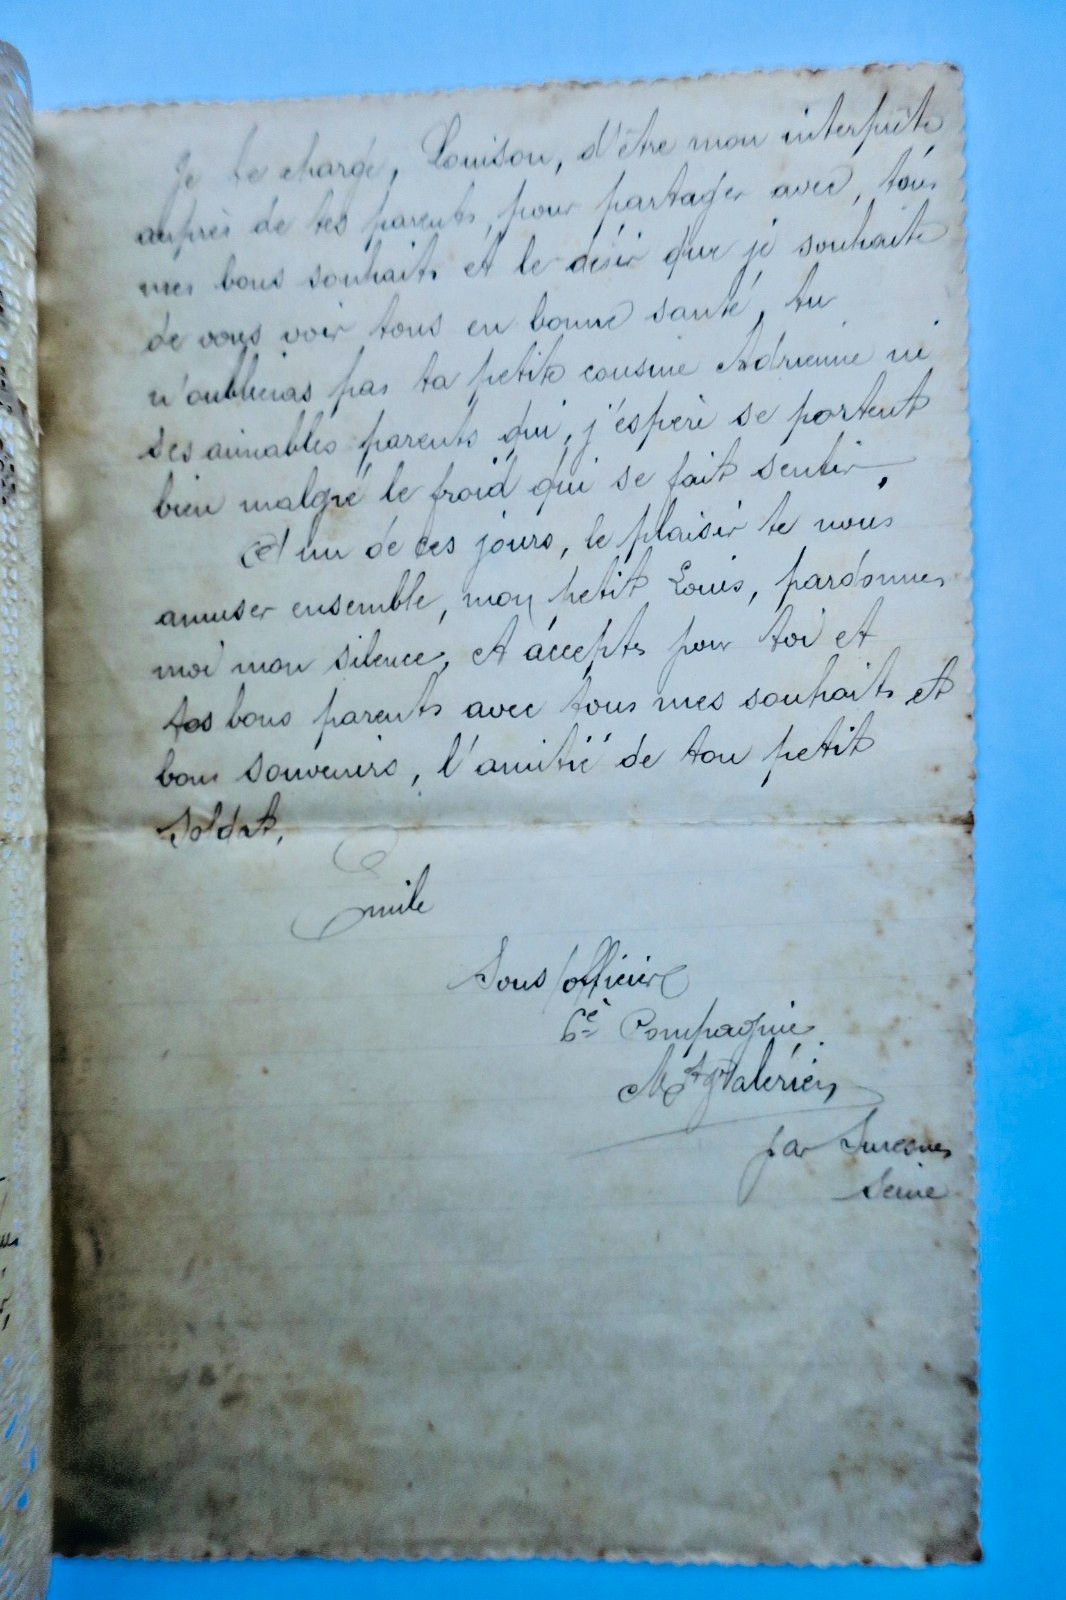 Je te charge, Louison, d'être mon interprète
auprès de tes parents, pour partager avec, tous
mes bons souhaits et le désir que je souhaite
de vous voir tous en bonne santé, tu
n'oublieras pas ta petite cousine Adrienne ni
ses aimables parents qui, j'espère se portent
bien malgré le froid qui se fait sentir.
A un de ces jours, le plaisir de nous
amuser ensemble, mon petit Louis, pardonnes
moi mon silence, et acceptes pour toi et
tes bons parents avec tous mes souhaits et
bons souvenirs, l'amitié de ton petit
soldat,
Emile
Sous/officier
6e Compagnie
Mt Valérien
par Suresnes
Seine